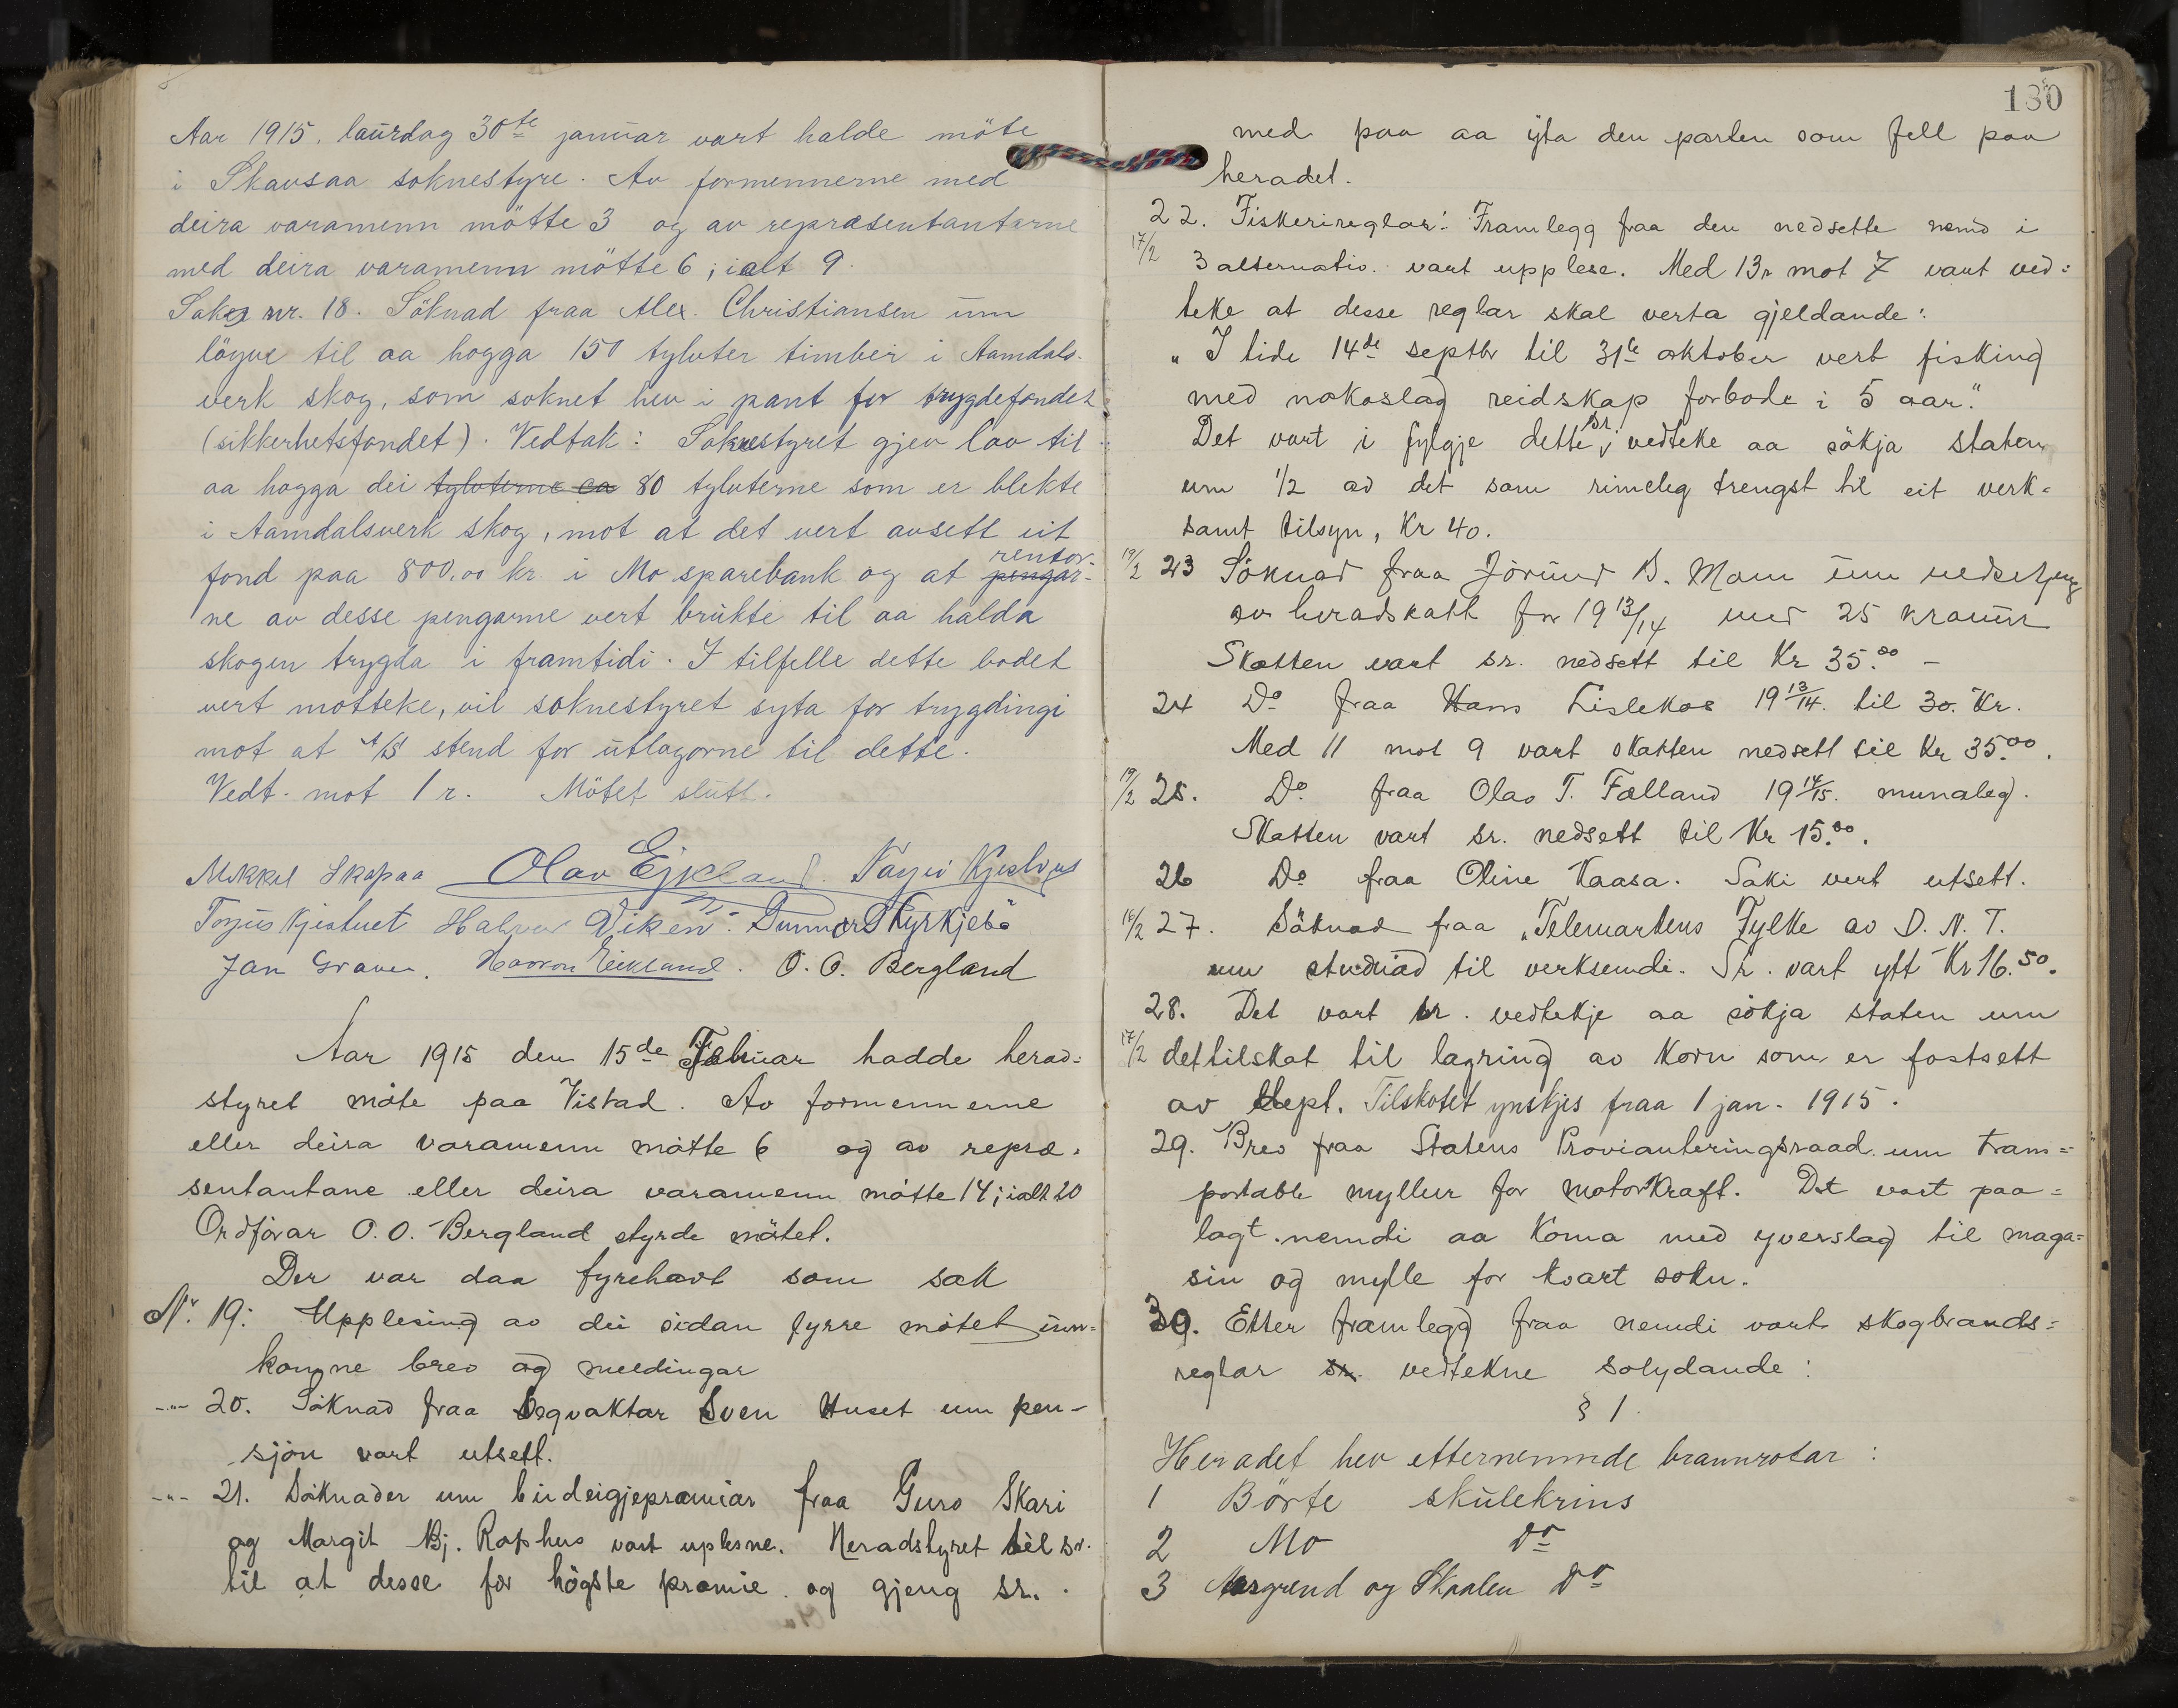 Aar 1915, laurdag 30te januar vart halde möte
i Skavsaa soknestyre. Av formennerne med
deira varamenn mötte 3 og av repræsentantarne
med deira varamenn mötte 6; ialt 9.
Sak nr. 18. Söknad fraa Alex. Christiansen um
löyve til aa hogga 150 tylvter timber i Aamdals-
verk skog, som soknet hev i pant for trygdefondet
(sikkerhetsfondet). Vedtak: Soknestyret gjev lov til
aa hogga dei tylvterne ca 80 tylvterne som er blekte
i Aamdalsverk skog, mot at det vert avsett eit
fond paa 800,00 kr. i Mo sparebank og at pengar- rentor-
ne av desse pengarne vert brukte til aa halda
skogen trygda i framtidi. I tilfelle dette bodet
vert motteke, vil soknestyret syta for trygdingi
mot at A/S stend for utlagorne til dette.
Vedt. mot 1 r. Mötet slutt.
Mikkel Skapaa Olav Eikland
Halvor Viken. Gunnar Kyrkjebö
Jan Graver. Eikland. O. O. Bergland
Aar 1915 den 15de Februar hadde herad=
styret möte paa Vistad. Av formennerne
eller deira varamenn mötte 6 og av repræ-
sentantane eller deira varamenn mötte 14; ialt 20
Ordförar O. O. Bergland styrde mötet.
Der var daa fyrehavt som sak
Nr. 19: Upplesing av dei sidan fyrre mötet inn=
komne brev og meldingar
-"- 20. Söknad fraa Vegvaktar Sven Huset um pen-
sjon vart utsett.
-"- 21. Söknader um budeigjepræmiar fraa Guro Skari
og Margit Bj. Raphus vart uplesne. Heradstyret til sr.
til at desse for högste præmie og gjeng sr.
130
med paa aa yta den parten som fell paa
heradet.
22. Fiskerireglar: Framlegg fraa den nedsette nemd i
17/2 3 alternativ. vart upplese. Med 13 r mot 7 vart ved=
teke at desse reglar skal verta gjeldande:
„I tide 14de septbr til 31te oktober vert fisking
med nokoslag reidskap forbode i 5 aar."
Det vart i fylgje dette sr. vedteke aa sökja staten
um 1/2 av det som rimeleg trengst til eit verk=
samt tilsyn, Kr 40.
19/2 23 Söknad fraa Jörund B. Moen um nedsetjing
av heradskatt for 1913/14 med 25 kronur
Skatten vart sr. nedsett til Kr 35.00 -
24 Do fraa Hans Lislekos 1913/14. til 30. Kr.
Med 11 mot 9 vart skatten nedsett til Kr 35.00.
19/2 25. Do fraa Olav T. Fælland 1914/15. munaleg.
Skatten vart sr. nedsett til Kr 15.00.
26 Do fraa Oline Kaasa. Saki vert utsett.
16/2 27. Söknad fraa „Telemarkens Fylke av D. N. T.
um studnad til verksemdi. Sr. vart ytt Kr 16.50.
28. Det vart sr. vedtekje aa sökja staten um
17/2 det tilskot til lagring av korn som er fastsett
av Dept. Tilskotet ynskjes fraa 1 jan. 1915.
29. Brev fraa Statens Provianteringsraad um trans=
portable myllur for motorkraft. Det vart paa=
lagt nemdi aa koma med yverslag til maga=
sin og mylle for kvart sokn.
30. Etter framlegg fraa nemdi vart skogbrands=
reglar sr. vedtekne solydande:
§ 1.
Heradet hev etternemnde brannrotar:
1 Börte skulekrins
2 Mo Do
3 og Skaalen Do